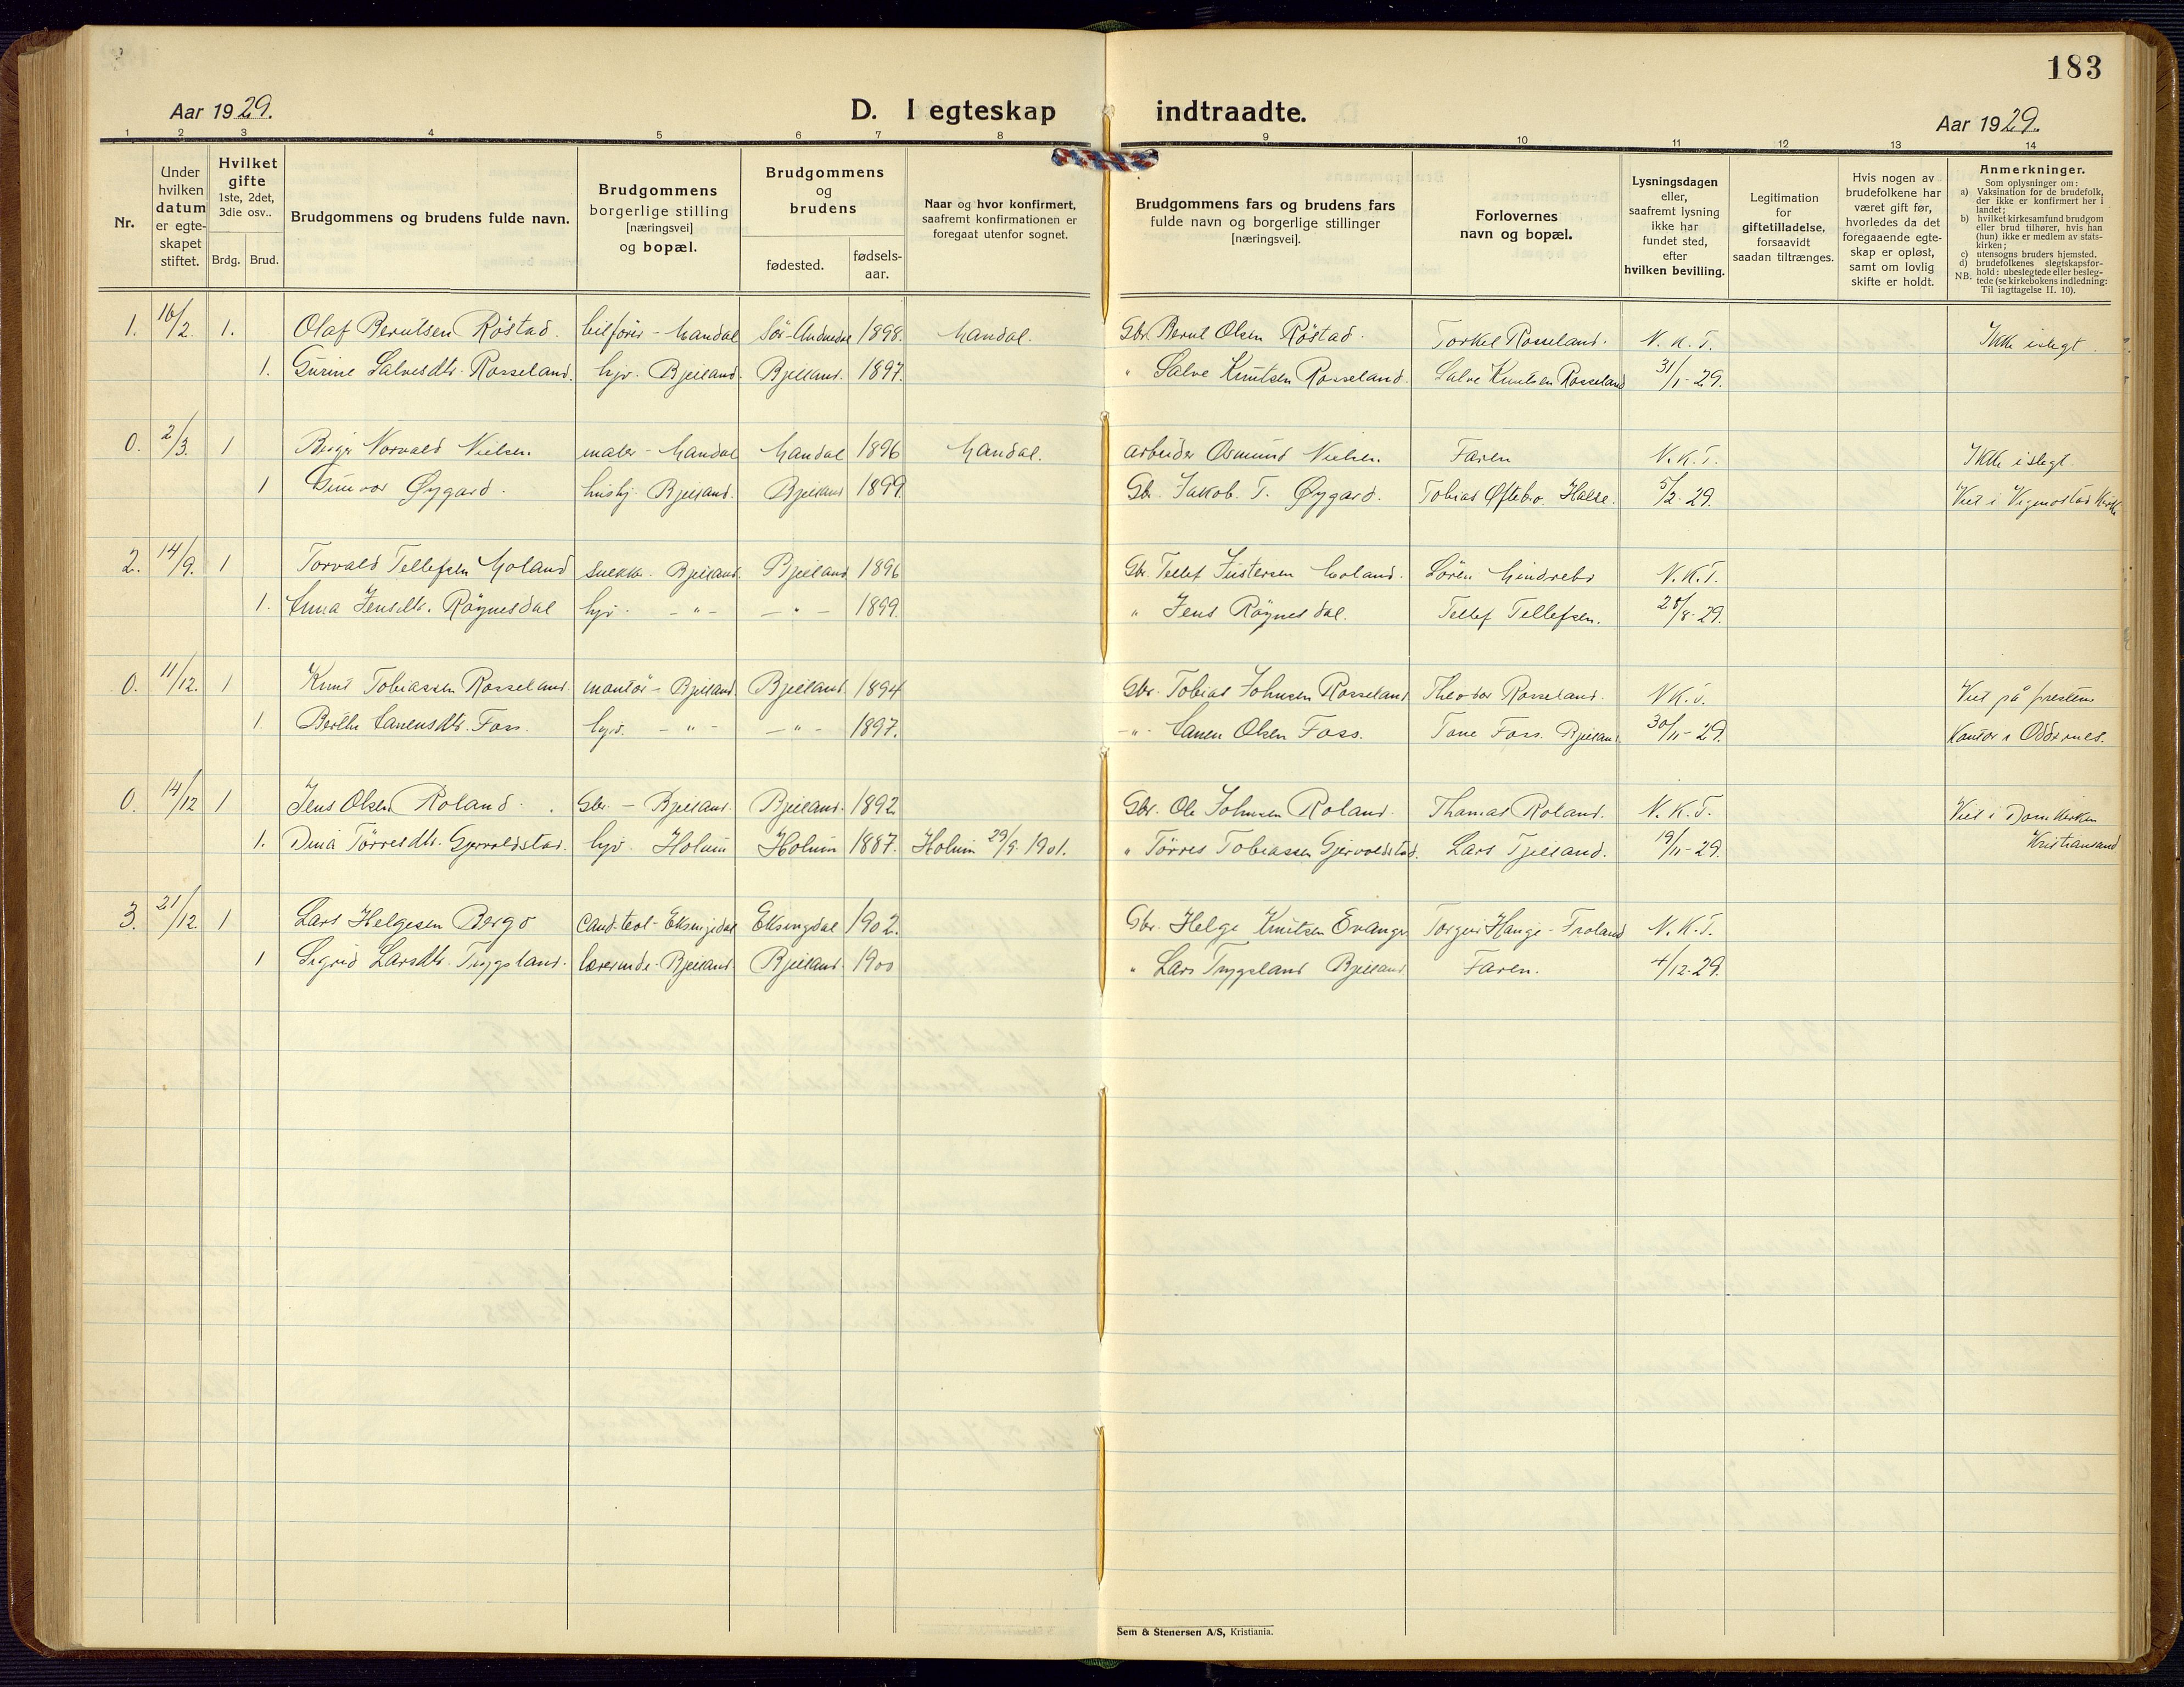 183
Aar 1929.
D. I egteskap indtraadte.
Aar 1929.
1 2 3 4 5 6 7 8 9 10 11 12 13 14
Nr.
Under
hvilken
datum
er egte-
skapet
stiftet.
Hvilket
gifte
1ste, 2det,
3die osv..
Brdg. Brud.
Brudgommens og brudens fulde navn.
Brudgommens
borgerlige stilling
[næringsvei]
og bopæl.
Brudgommens
og
brudens
fødested.
fødsels-
aar.
Naar og hvor konfirmert,
saafremt konfirmationen er
foregaat utenfor sognet.
Brudgommens fars og brudens fars
fulde navn og borgerlige stillinger
[næringsvei].
Forlovernes
navn og bopæl.
Lysningsdagen
eller,
saafremt lysning
ikke har
fundet sted,
efter
hvilken bevilling.
Legitimation
for
giftetilladelse,
forsaavidt
saadan tiltrænges.
Hvis nogen av
brudefolkene har
været gift før,
hvorledes da det
foregaaende egte-
skap er opløst,
samt om lovlig
skifte er holdt.
Anmerkninger.
Som oplysninger om:
a) Vaksination for de brudefolk,
der ikke er konfirmert her i
landet;
b) hvilket kirkesamfund brudgom
eller brud tilhører, hvis han
(hun) ikke er medlem av stats-
kirken;
c) utensogns bruders hjemsted.
d) brudefolkenes slegtskapsfor-
hold: ubeslegtede eller besleg-
tede (se kirkebokens indledning:
NB. Til iagttagelse II. 10).
1. 16/2. 1. Olaf Berntsen Röstad. bilförer - Mandal Sör-Audnedal 1898. Mandal. Gbr. Bernt Olsen Röstad. Torkel Rosseland. N. K. T. Ikke i slegt.
1. Gurine Salvesdtr. Rosseland. hjv. Bjelland. Bjelland. 1897. " Salve Knutsen Rosseland. Salve Knutsen Rosseland 31/1-29.
0. 2/3. 1 Birger Norvald Nielsen. maler - Mandal Mandal 1896 Mandal. arbeider Osmund Nielsen. Faren N. K. T. Ikke i slegt.
1 Gunvor Øygard. hushj. Bjelland. Bjelland 1899. Gbr. Jakob. T. Øygard. Tobias Øftebro. Halse. 5/2-29. Viet i Vigmostad Kirke
2. 14/9. 1 Torvald Tellefsen Moland snekker. Bjelland. Bjelland 1896 Gbr. Tellef Justersen Moland. Sören Mindrebö N. K. T.
1. Anna Jensdtr. Röynesdal hjv. - " - - " - 1899. " Jens Röynesdal. Tellef Tellefsen. 28/8-29.
0. 11/12. 1 Knut Tobiassen Rosseland. montör - Bjelland. Bjelland. 1894 Gbr. Tobias Johnsen Rosseland Theodor Rosseland. N. K. T. Viet på prestens
1. Berthe Foss. hjv. - " - - " - 1897. - " - Olsen Foss. Tone Foss. Bjelland. 30/11-29. Kontor i Oddernes.
0. 14/12 1 Jens Olsen Roland. Gbr. - Bjelland. Bjelland. 1892 Gbr. Ole Johnsen Roland. Thomas Roland. N. K. T. Viet i Domkirken
1. Dina Törresdtr. Gjervoldstad. hjv. Holum Holum 1887. Holum 29/9 1901. " Törres Tobiassen Gjervoldstad. Lars Tjelland. 19/11-29. Kristiansand
3. 21/12. 1 Lars Helgesen Bergo cand. teol - Eksingedal Eksingdal 1902. Gbr. Helge Knutsen Evanger Torgeir Hauge - Froland N. K. T.
1 Sigrid Larsdtr. Trygsland. lærerinde - Bjelland. Bjelland. 1900 " Lars Trygsland Bjelland Faren. 4/12-29.
Sem & Stenersen A/S, Kristiania.